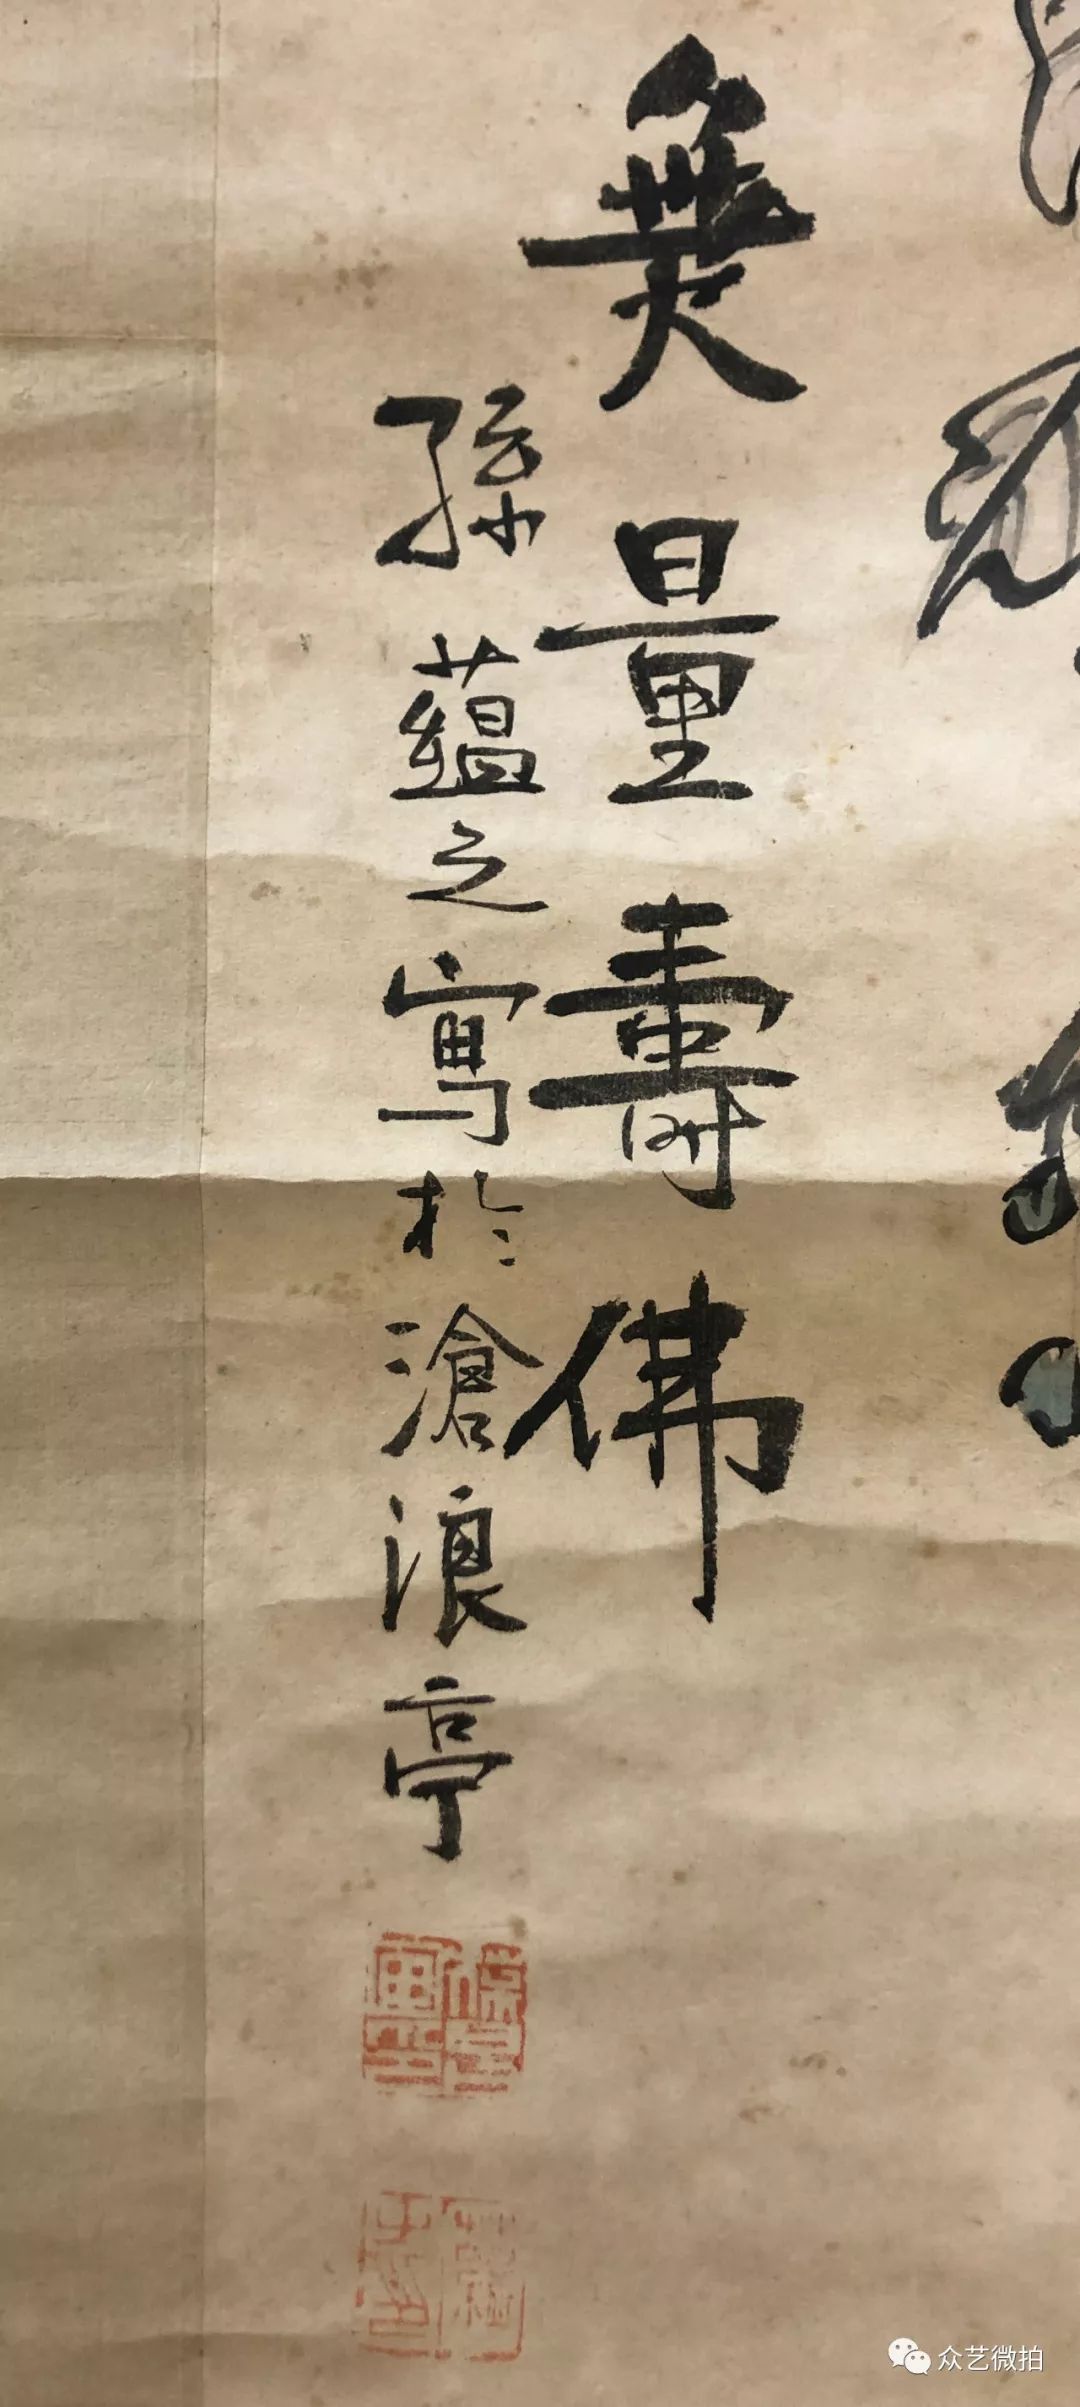 無量壽佛
孫蘊之寫於滄浪亭
众艺微拍